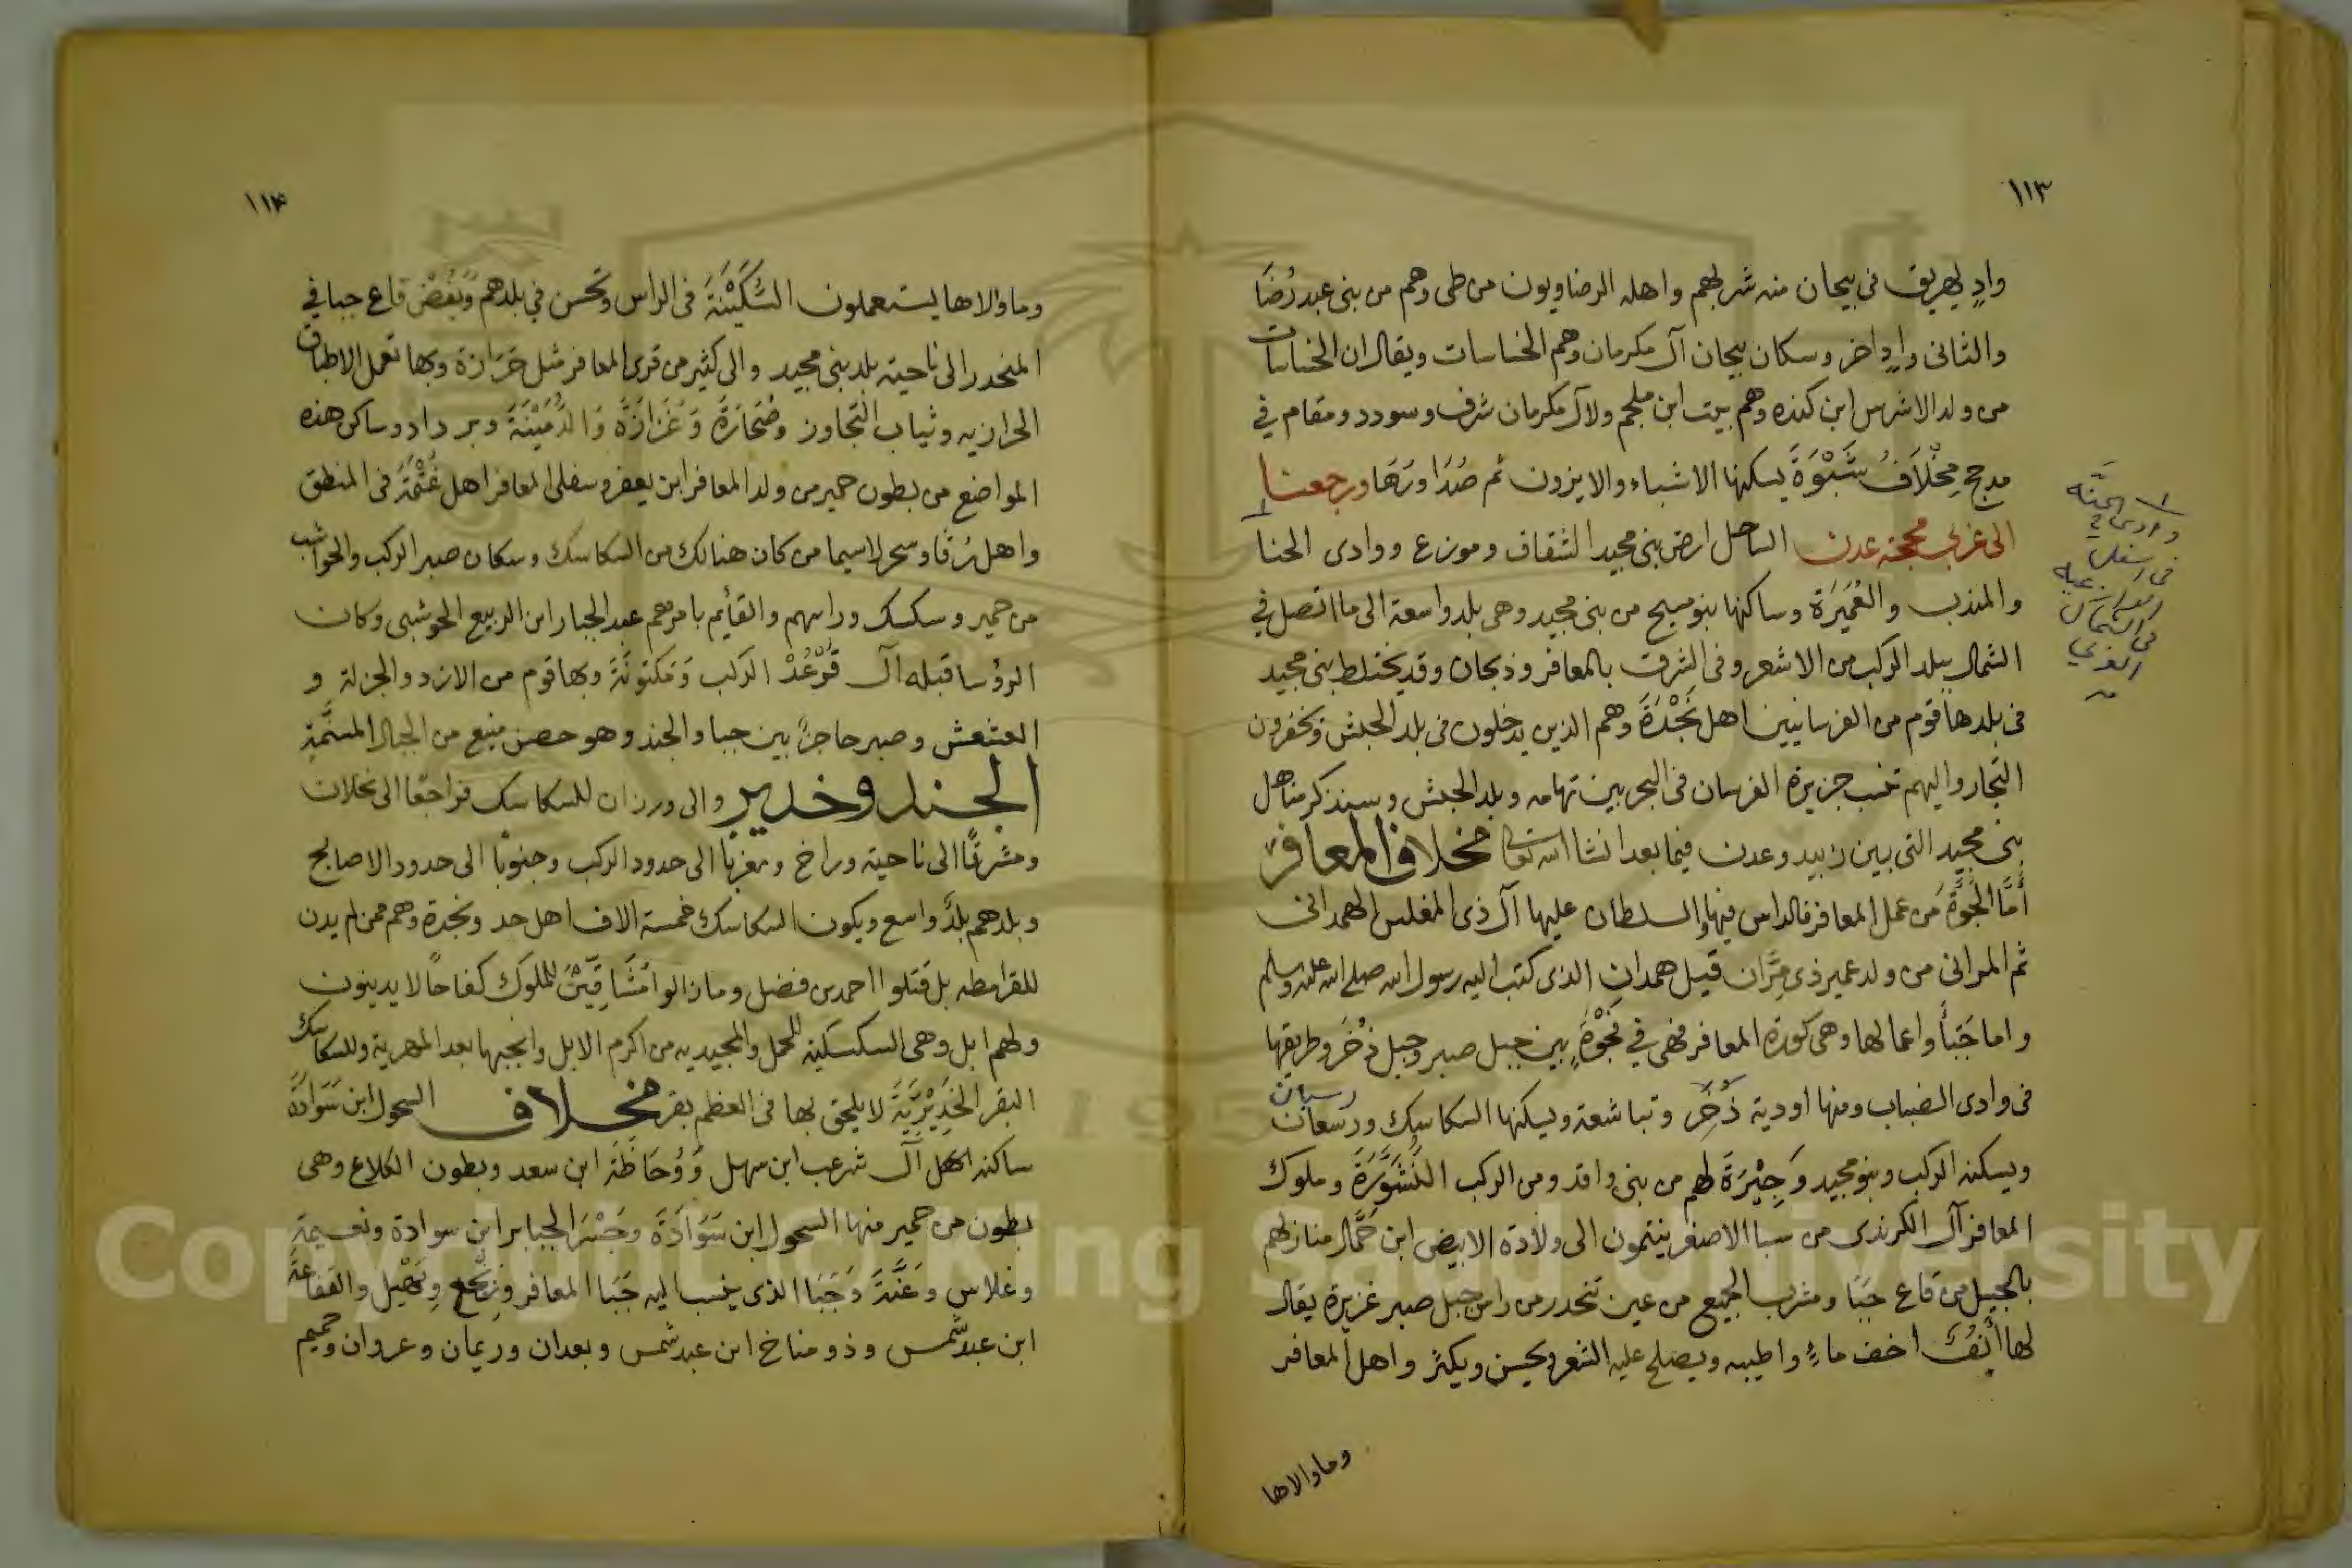 ١١٣
وادٍ يهريق في بيحان منه شربهم واهله الرضاويون من طى وهم من بنى عبد رُضَا
والثانى وادٍ اخر وسكان بيحان آل مكرمان وهم الخساسات ويقال ان الخساسات
من ولد الاشرس ابن كنده وهم بيت ابن ملجم ولآل مكرمان شرف وسودد ومقام في
مدجح مِخْلَافُ شَبْوَةَ يسكنها الاشباء والايزون ثم صُدَا ورَهَا ورجعنا
الى غربي محجته عدن الساحل ارض بنى مجيد الشقاق وموزع ووادى الحنا
والمندب والعُمَيْرَة وساكنها بنو مسيح من بنى مجيد وهى بلد واسعة الى ما اتصل في
الشمال ببلد الركب من الاشعر وفى الشرق بالمعافر وذبحان وقد يختلط بنى مجيد
فى بلدها قوم من الفرسانيين اهل نَجْدَةَ وهم الذين يدخلون فى بلد الحبش ويخفرون
التجار واليهم تنسب جزيرة الفرسان فى البحر بين تهامه وبلد الحبش وسنذكر مناهل
بنى مجيد التى بين زبيد وعدن فيما بعد انشا الله تعالى مخلاف المعافر
أَمَّا الجُوَّةُ من عمل المعافر فالراس فيها والسلطان عليها آل ذى المغلس الهمدانى
ثم المرانى من ولد عمير ذى مرَّان قيل همدان الذى كتب اليه رسول الله صلى الله عليه وسلم
واما جَبَأ واعمالها وهى كورة المعافر فهى في نَجْوَةٍ بين جبل صبر وجبل ذُخَر وطريقها
فى وادى الضباب ومنها اودية ذُخَر وتباشعة ويسكنها السكاسك ورسعان
رسيان
ويسكنه الركب وبنو مجيد وَجِيْرَة لهم من بنى واقد ومن الركب النَّشَوَرَة وملوك
المعافر آل الكرندى من سبا الاصغر ينتمون الى ولادة الابيض ابن حَمَّال منازلهم
بالجبيل من قاع جَبَا ومشرب الجميع من عين تنحدر من راس جبل صبر غزيرة يقال
لها أَنِفُ اخف ماءٍ واطيبه ويصلح عليه الشعر ويحسن ويكثر واهل المعافر
وماوالاها
وادى الحنَّه
فى اسفل
فى الشمال
الغربي
١١٤
وماوالاها يستعملون السُّكَيْنَةَ فى الراس وتحسن في بلدهم ويفضى قاع جبا في
المنحدر الى ناحية بلد بنى مجيد والى كثير من قرى المعافر مثل حَرَازة وبها تعمل الاطباق
الحرازيه وثياب التجاوز وصُحَارَةَ وَعَزَازَةَ وَالدُّمَيْنَةَ وبرداد وساكن هذه
المواضع من بطون حمير من ولد المعافر ابن يعفر وسفلى المعافر اهل غُتْمَةٍ فى المنطق
واهل رُقا وسحر لاسيما من كان هنالك من السكاسك وسكان صبر الركب والحواشب
من حمير وسكسك وراسهم والقائم بامرهم عبد الجبار ابن الربيع الحوشبى وكان
الرؤسا قبله آل قَرْعُدْ الركب وَمَكنُونَةَ وبها قوم من الازد والجزلة و
العشعش وصبر حاجزٌ بين جبا والجند وهو حصن منيع من الجبال المسنَّمَةِ
الجند وخدير والى ورزان للسكاسك فراجعًا الى نخلان
ومشرقًا الى ناحية وراخ ومغربا الى حدود الركب وجنوبًا الى حدود الاصابح
وبلدهم بلدٌ واسع ويكون السكاسك خمسة الاف اهل حد ونجدة وهم ممن لم يدن
للقرامطه بل قتلوا احمد بن فضل ومازالوا مُشَاقِّيْنَ للملوك كفاحًا لا يدينون
ولهم ابل وهى السكسكيه للحمل والمجيديه من اكرم الابل وانجبها بعد المهرية وللسكاسك
البقر الخَدِيْرِيَّةَ لا يلحق بها فى العظم بقر مخلاف السحول ابن سَوَادَةَ
ساكنه اهل آل شرعب ابن سهل وَوُحَاظَة ابن سعد وبطون الكلاع وهى
بطون من حمير منها السحول ابن سَوَادَةَ وجَسْرَ الجبابر ابن سوادة ونعيمة
وغلاس وَعَنَّةَ وَجَبَا الذى ينسب اليه جَبَا المعافر ونخع وِبَهْيِل والقفاعة
ابن عبد شمس وذو مناخ ابن عبد شمس وبعدان وريمان وعروان وحميم